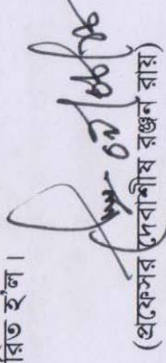 রিত হ'ল।
(প্রফেসর দেবাশীষ রঞ্জন রায়)